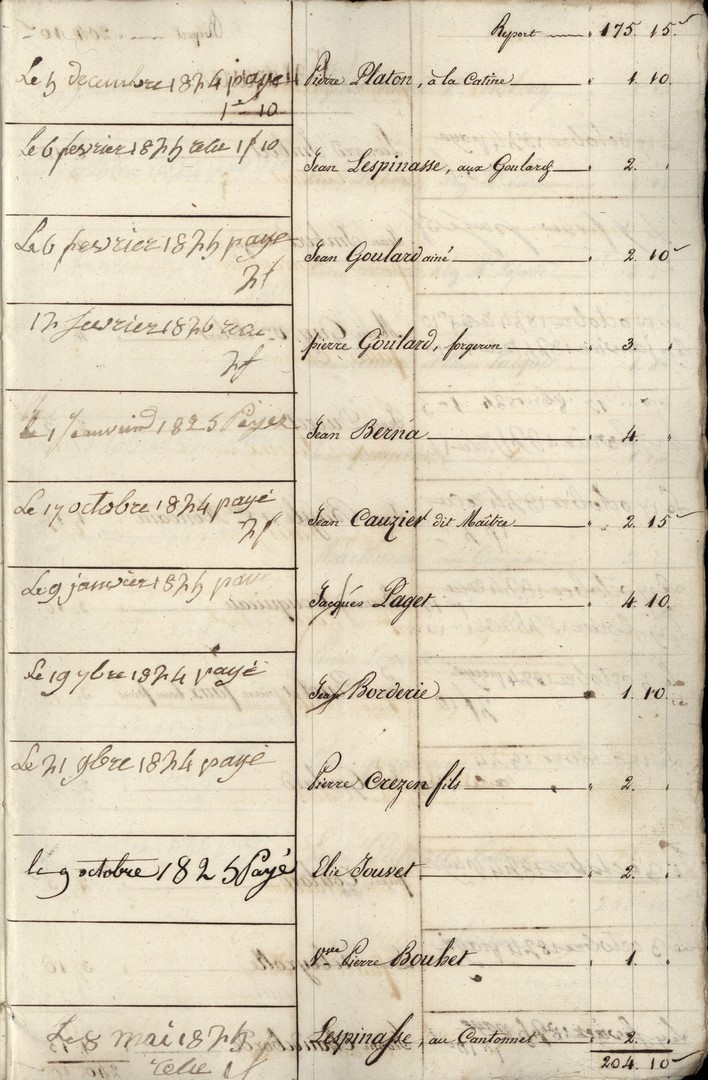 Report 175. 15.
Le 5 decembre 1824 payé Pierre Platon, à la Catine 1. 10.
1 10
le 6 fevrier 1825 1f 10
Jean Lespinasse, aux Goulards 2. "
Le 6 fevrier 1825 payé
2f Jean Goulard ainé 2. 10
12 fevrier 1826
2f pierre Goulard, forgeron 3. "
le 1 Janvier 1825 Payer Jean Berna 4. "
Le 17 octobre 1824 payé
2f Jean Cauzier dit Maître 2. 15
Le 9 janvier 1825 payé
Jacques Paget 4. 10.
Le 19 7bre 1824 payé
Jean Borderie 1. 10.
Le 21 9bre 1824 payé
Pierre Crezen fils 2. "
le 9 octobre 1825 Payé Elie Jouvet 2. "
Vve Pierre Bouhet 1. "
Le 8 mai 1825 Lespinasse, au Cantonnet 2. "
204. 10